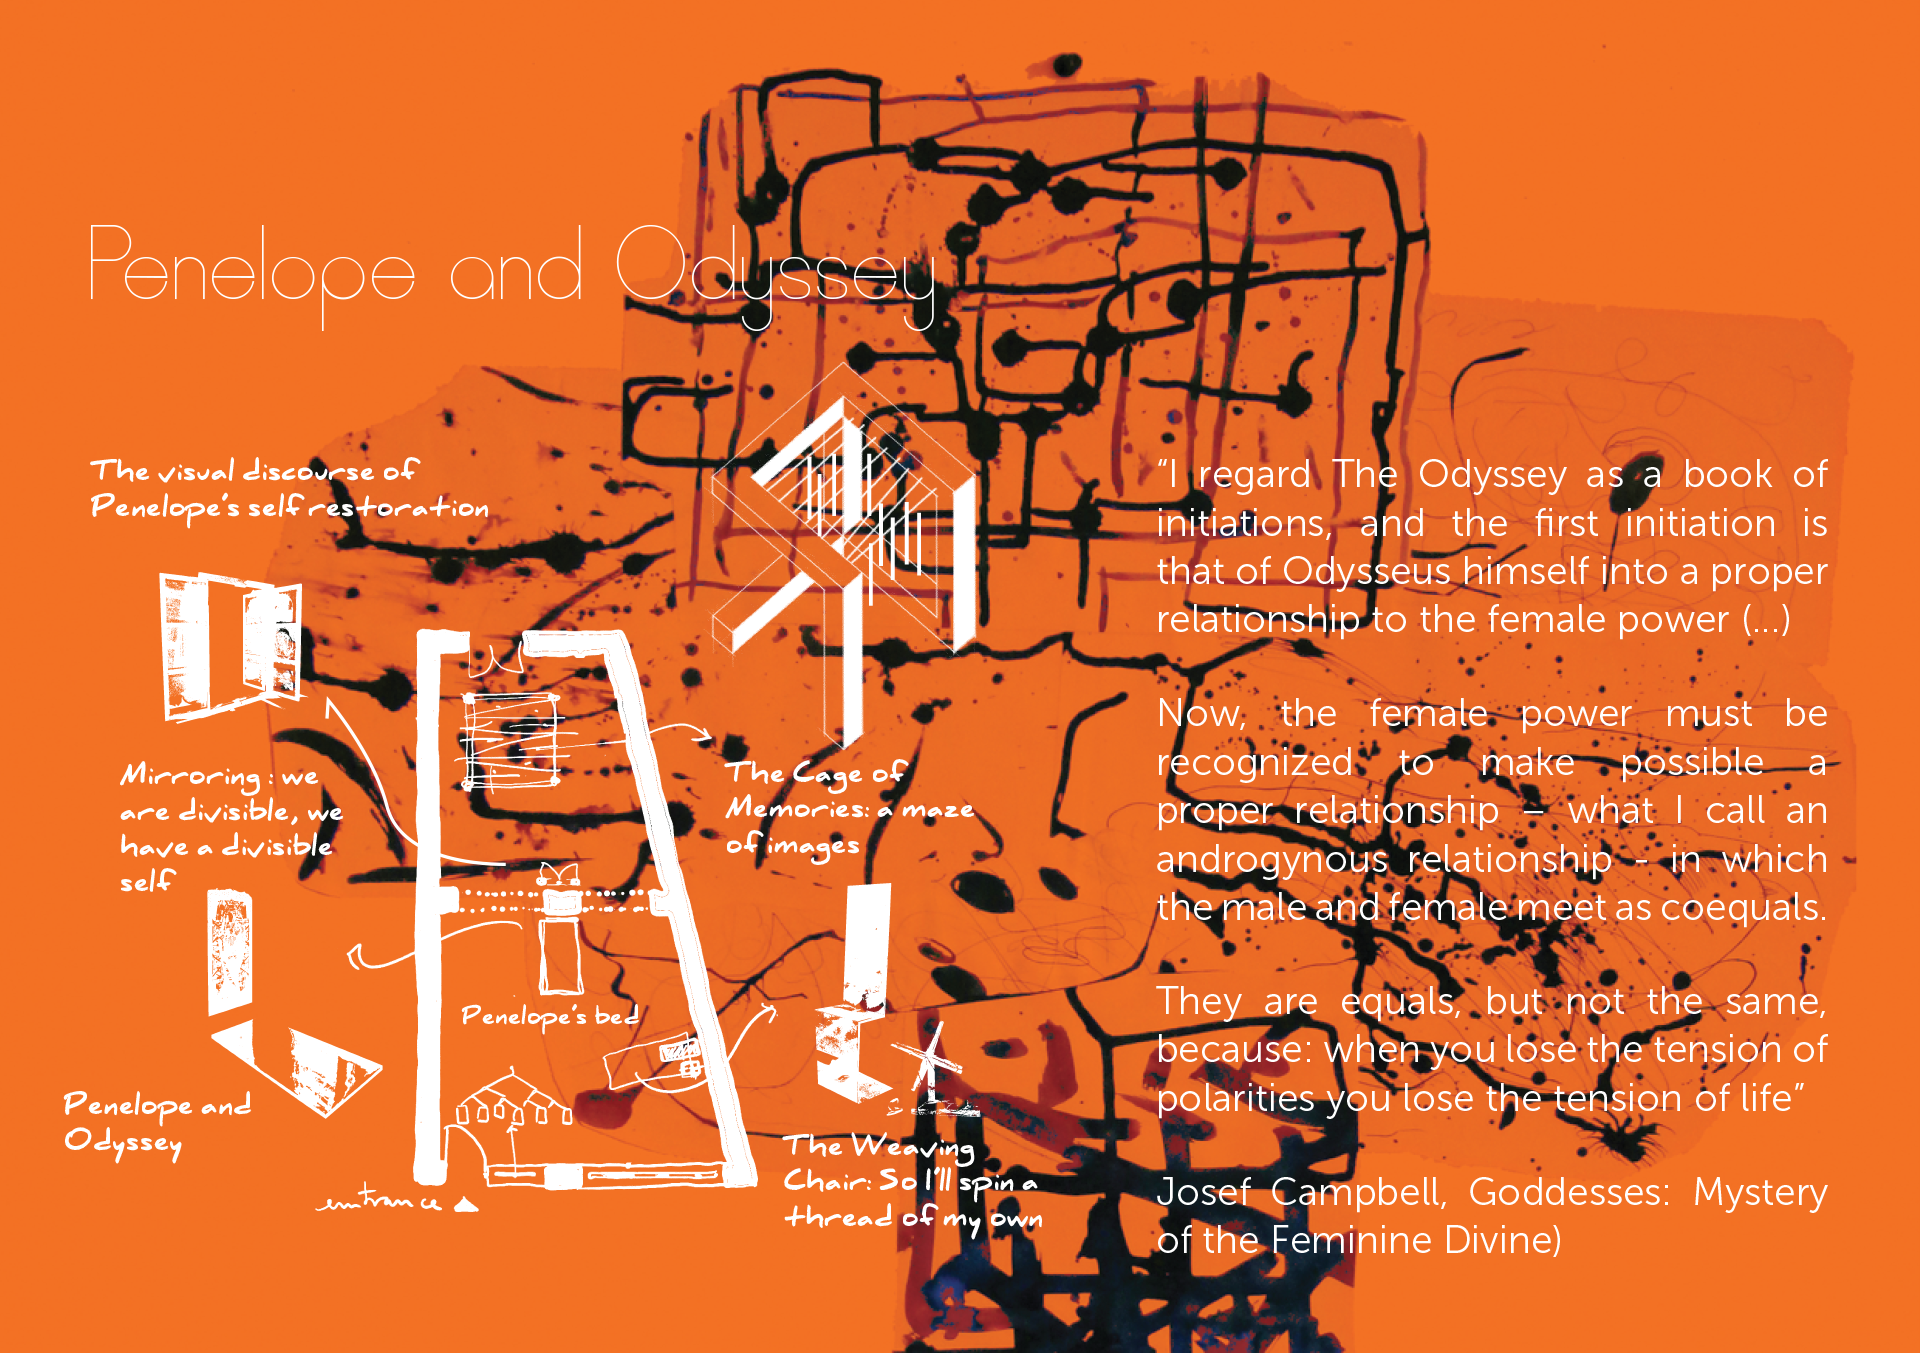 Penelope and Odyssey
The visual discourse of
Penelope's self restoration
Mirroring : we
are divisible, we
have a divisible
self
Penelope and
Odyssey
Penelope's bed
entrance
The Cage of
Memories: a maze
of images
The Weaving
Chair: So I'll spin a
thread of my own
"I regard The Odyssey as a book of
initiations, and the first initiation is
that of Odysseus himself into a proper
relationship to the female power (...)
Now, the female power must be
recognized to make possible a
proper relationship – what I call an
androgynous relationship - in which
the male and female meet as coequals.
They are equals, but not the same,
because: when you lose the tension of
polarities you lose the tension of life"
Josef Campbell, Goddesses: Mystery
of the Feminine Divine)